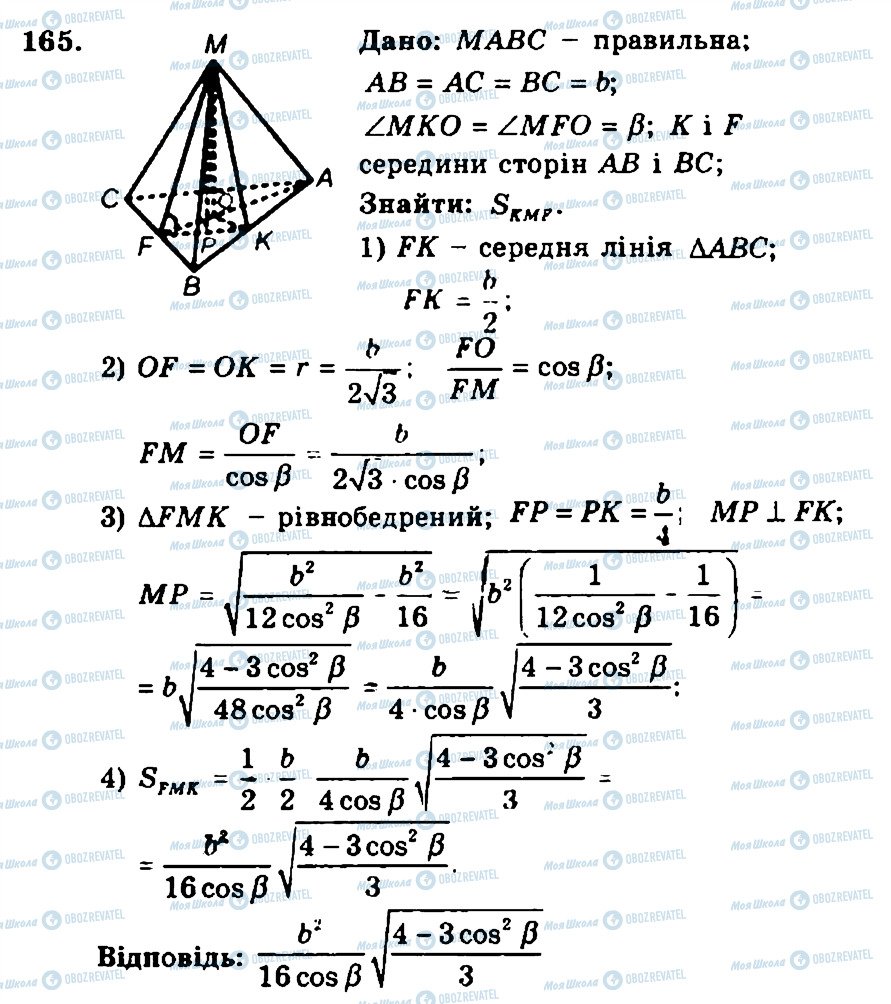 165.
Дано: MABC – правильна;
AB = AC = BC = b;
∠MKO = ∠MFO = β; K і F
середини сторін AB і BC;
Знайти: S_KMP.
M
C
A
O
F
P
K
B
1) FK – середня лінія ΔABC;
FK = b/2;
2) OF = OK = r = b/(2√3); FO/FM = cos β;
FM = OF/cos β = b/(2√3 · cos β);
3) ΔFMK – рівнобедрений; FP = PK = b/4; MP ⊥ FK;
MP = √(b²/(12 cos² β) - b²/16) = √(b²(1/(12 cos² β) - 1/16)) =
= b√((4 – 3 cos² β)/(48 cos² β)) = b/(4 · cos β) √((4 – 3 cos² β)/3);
4) S_FMK = 1/2 · b/2 · b/(4 cos β) √((4 – 3 cos² β)/3) =
= b²/(16 cos β) √((4 – 3 cos² β)/3).
Відповідь: b²/(16 cos β) √((4 – 3 cos² β)/3)
Моя Школа OBOZREVATEL